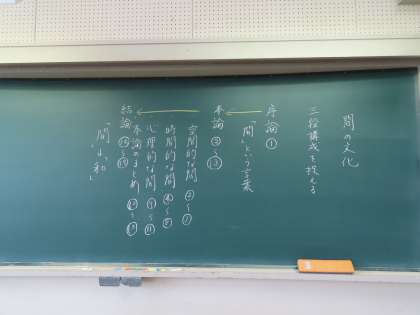 間の文化
三段構成を捉える
序論①
「間」という言葉
本論②〜⑬
空間的な間②〜
時間的な間
心理的な間⑨〜⑪
本論のまとめ⑫〜⑬
結論⑭〜⑮
「間」と「和」